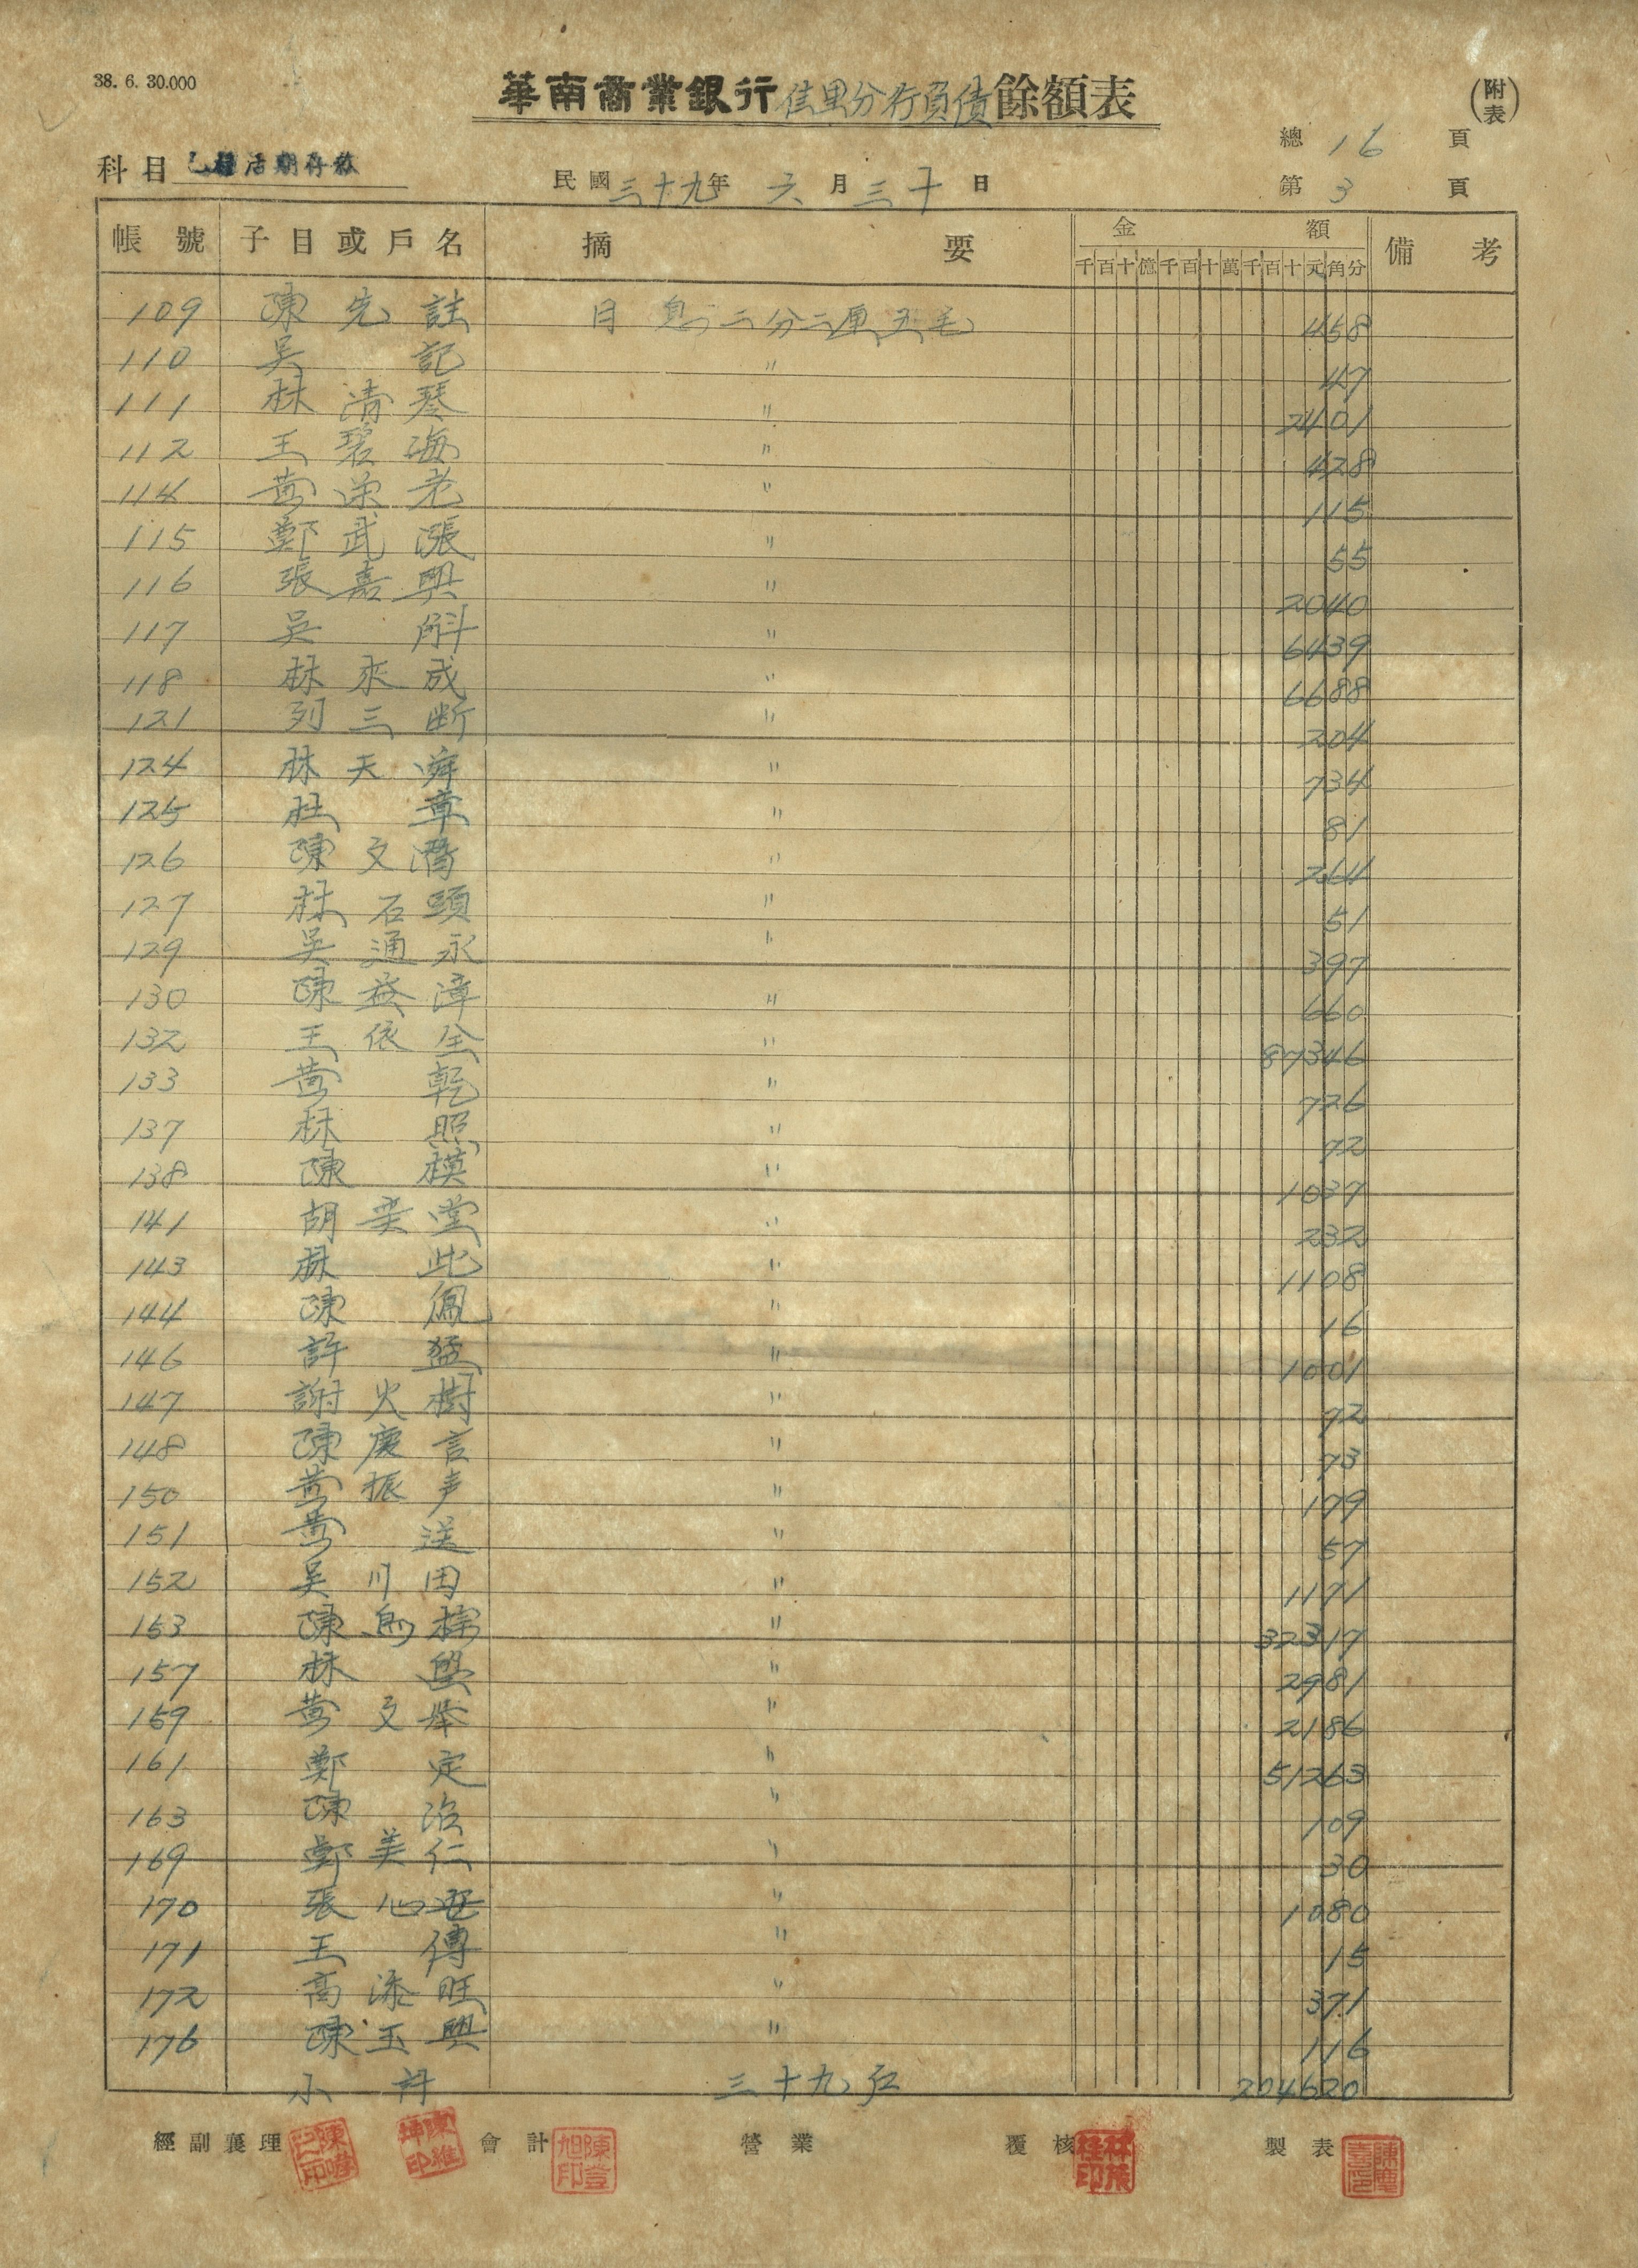 38. 6. 30.000
華南商業銀行信里分行負債餘額表
(附表)
總 16 頁
科目 乙種活期存款
民國三十九年 六月三十日
第 3 頁
帳號 子目或戶名 摘要 金額 備考
千百十億千百十萬千百十元角分
109 陳先註 日息二分二厘五毛 458
110 吳記 〃 47
111 林清琴 〃 2401
112 王碧海 〃 428
114 黃榮老 〃 115
115 鄭武漲 〃 55
116 張嘉興 〃 2040
117 吳斛 〃 6439
118 林來成 〃 6688
121 列三断 〃 204
124 林天舜 〃 734
125 杜章 〃 81
126 陳文潛 〃 2611
127 林石頭 〃 51
129 吳通永 〃 397
130 陳益漳 〃 660
132 王依全 〃 87346
133 黃乾 〃 726
137 林照 〃 72
138 陳模 〃 1037
141 胡奕堂 〃 232
143 蘇此 〃 1108
144 陳佩 〃 16
146 許猛 〃 1001
147 謝火樹 〃 72
148 陳慶言 〃 73
150 黃振声 〃 179
151 黃送 〃 57
152 吳川田 〃 1171
153 陳 〃 32317
157 林興 〃 2981
159 黃文舉 〃 2186
161 鄭定 〃 51263
163 陳治 〃 109
169 鄭美仁 〃 30
170 張心迎 〃 1080
171 王傳 〃 15
172 高添旺 〃 371
176 陳玉興 〃 116
小計 三十九戶 204620
經副襄理 會計 營業 覆核 製表
陳登旭印